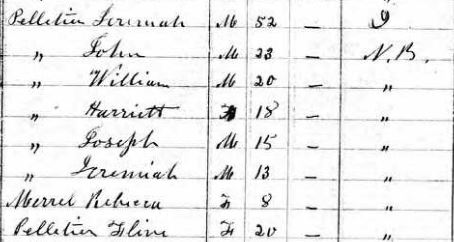 Pelletier Jeremiah M 52 — 
„ John M 23 — N.B.
„ William M 20 — „
„ Harriett F 18 — „
„ Joseph M 15 — „
„ Jeremiah M 13 — „
Merrel Rebecca F 8 — „
Pelletier Flive F 20 — „